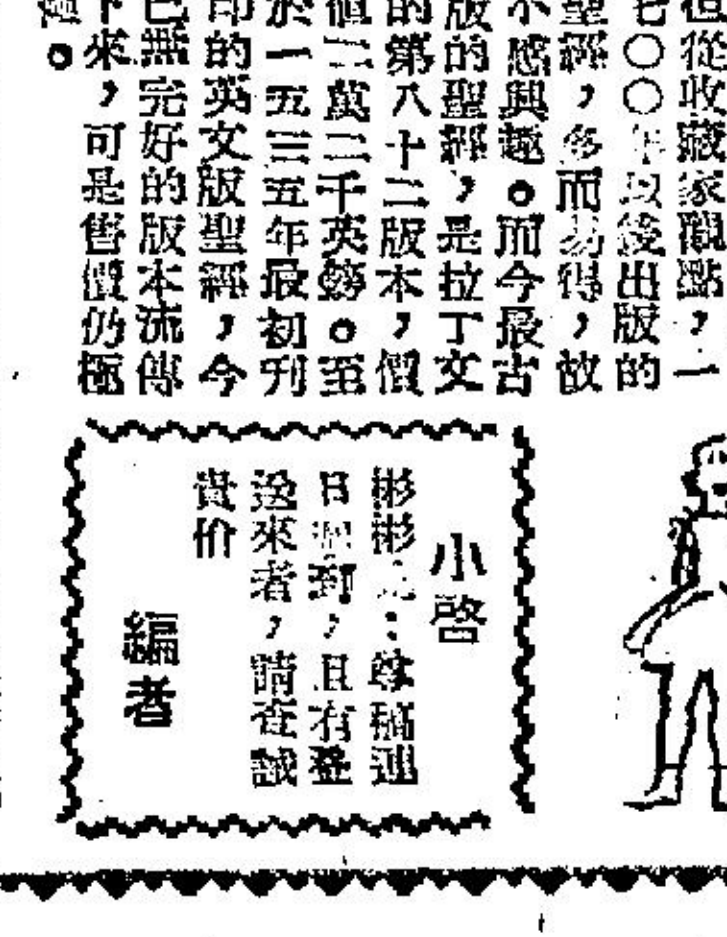 但從收藏家觀點，一
七〇〇年以後出版的
聖經，多而易得，故
不感興趣。而今最古
版的聖經，是拉丁文
的第八十二版本，價
值二萬二千英鎊。至
於一五三五年最初刊
印的英文版聖經，今
已無完好的版本流傳
下來，可是售價仍極
。
小啓
彬彬：尊稿連
日到，且有登
來者，請查誠
貴价
編者